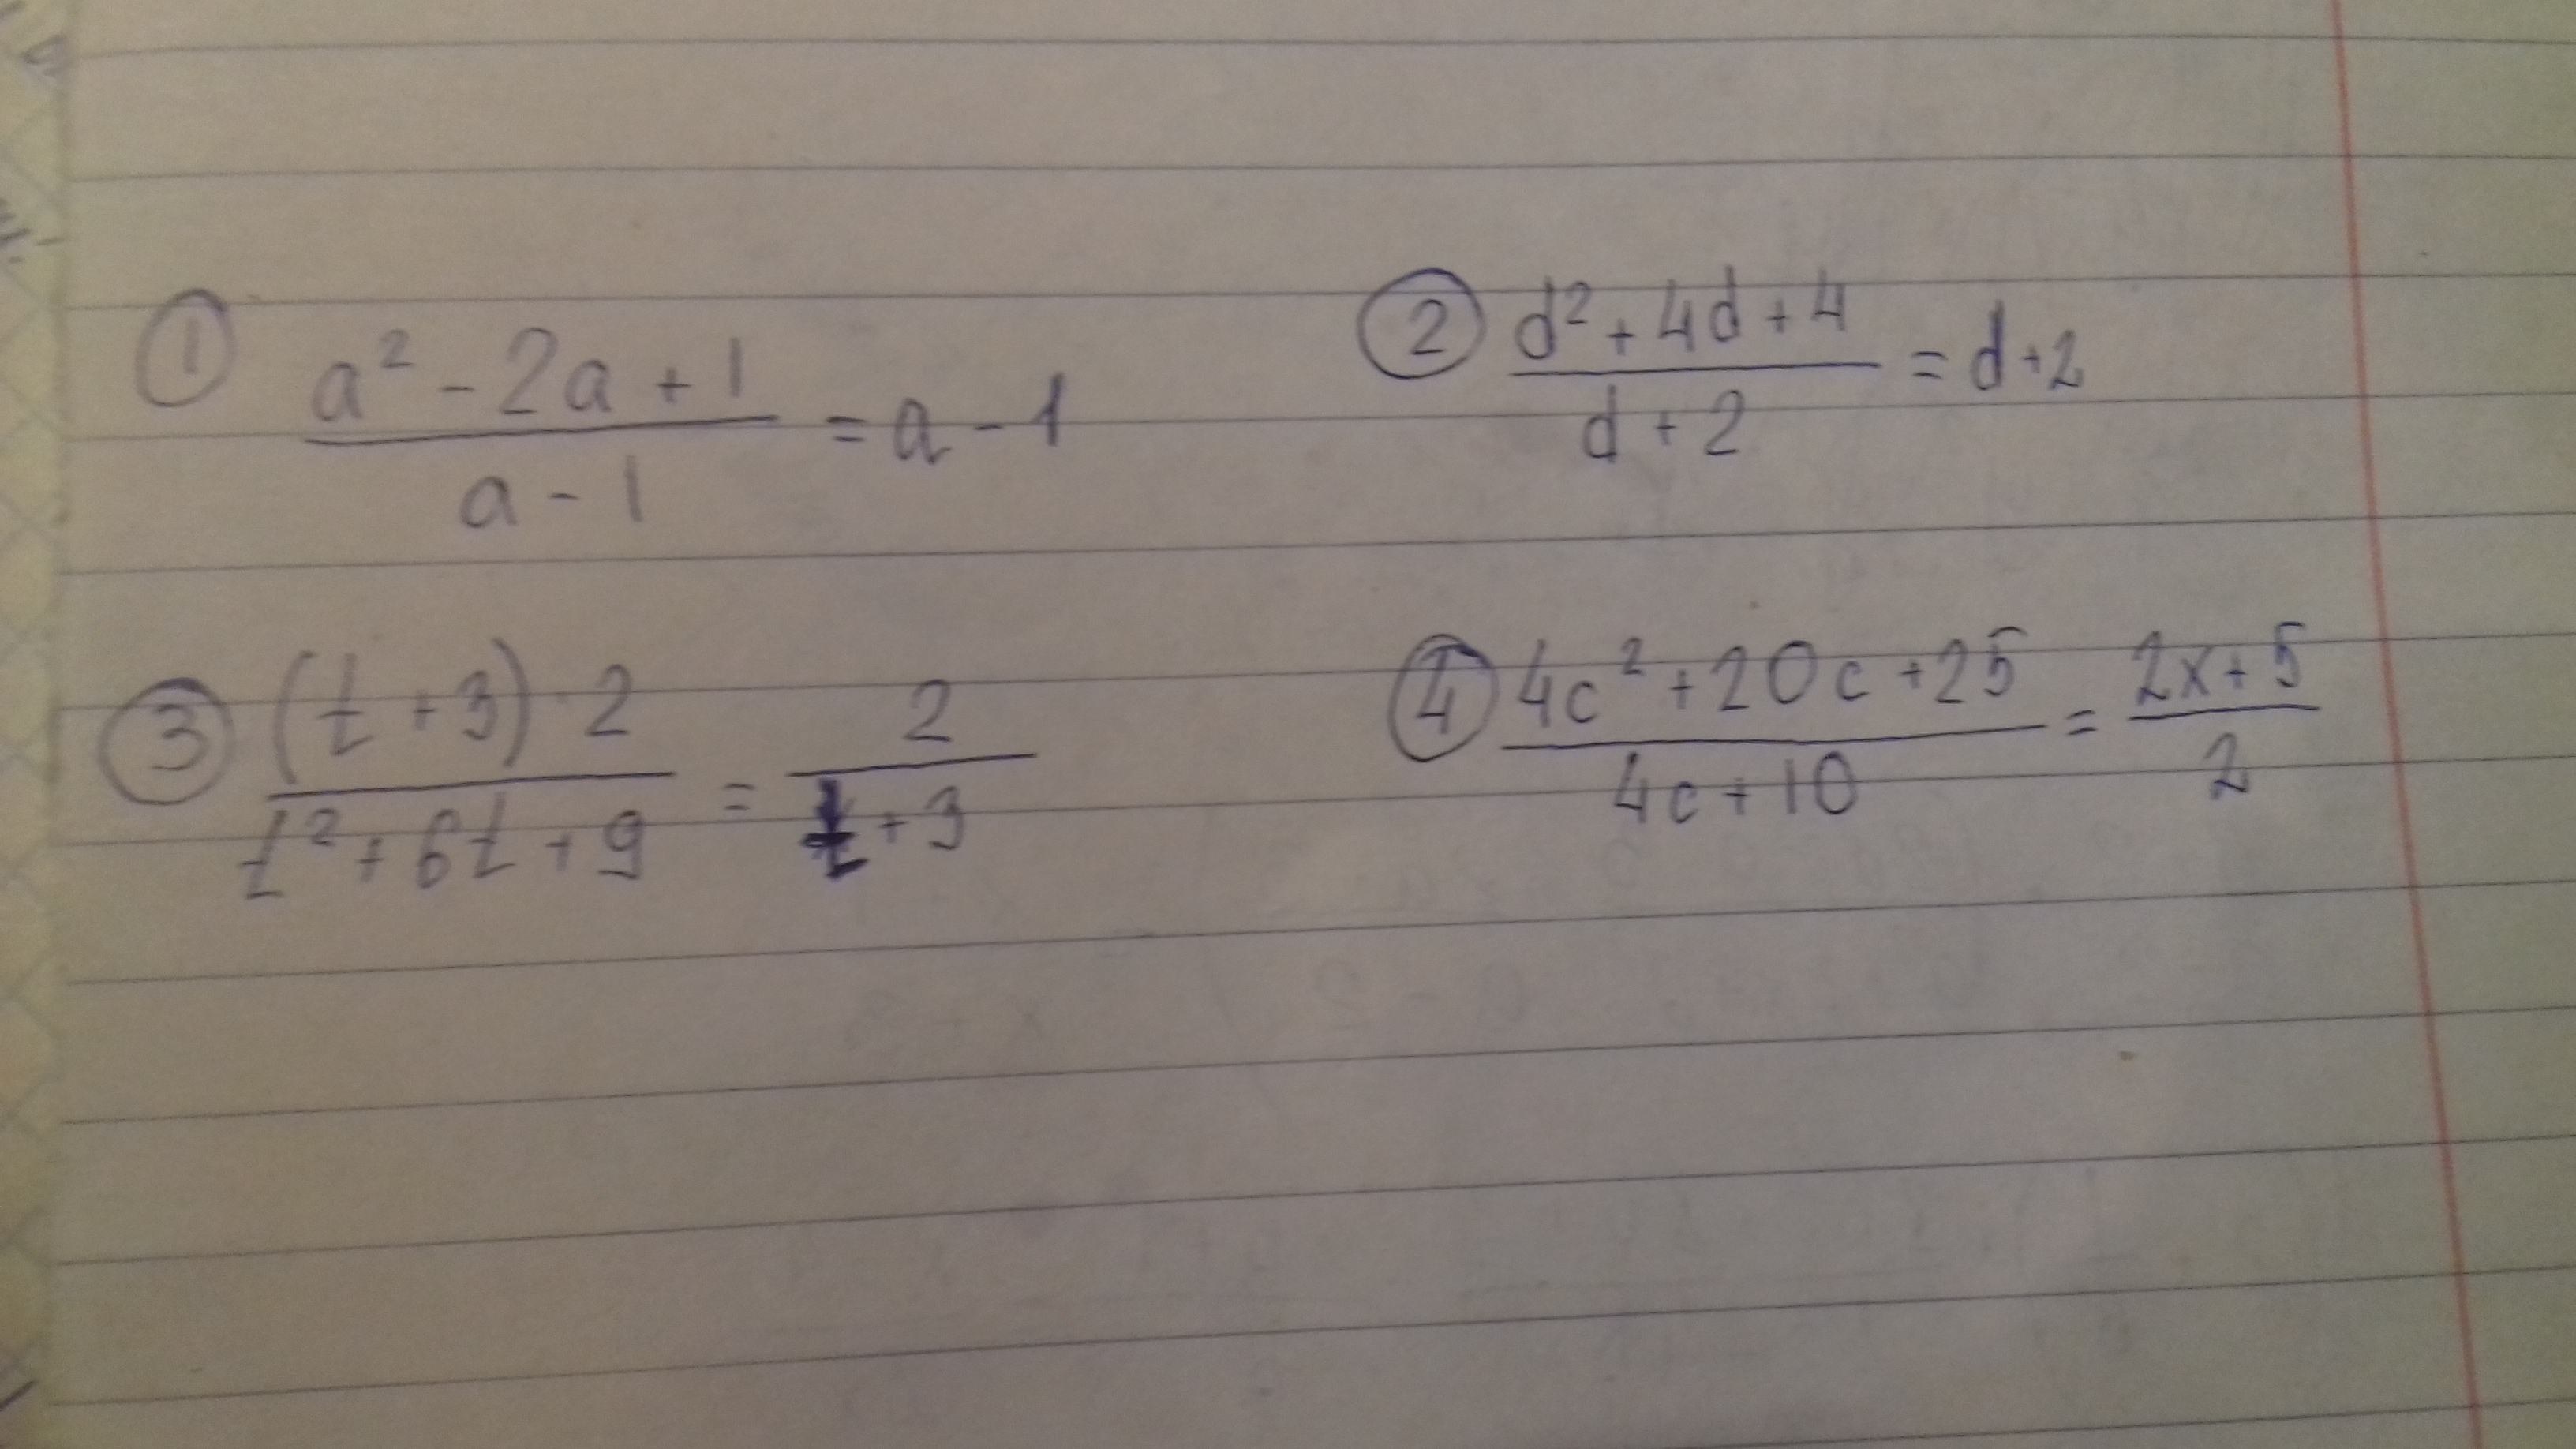 ① (a² - 2a + 1)/(a - 1) = a - 1
② (d² + 4d + 4)/(d + 2) = d + 2
③ ((t + 3) · 2)/(t² + 6t + 9) = 2/(t + 3)
④ (4c² + 20c + 25)/(4c + 10) = (2x + 5)/2